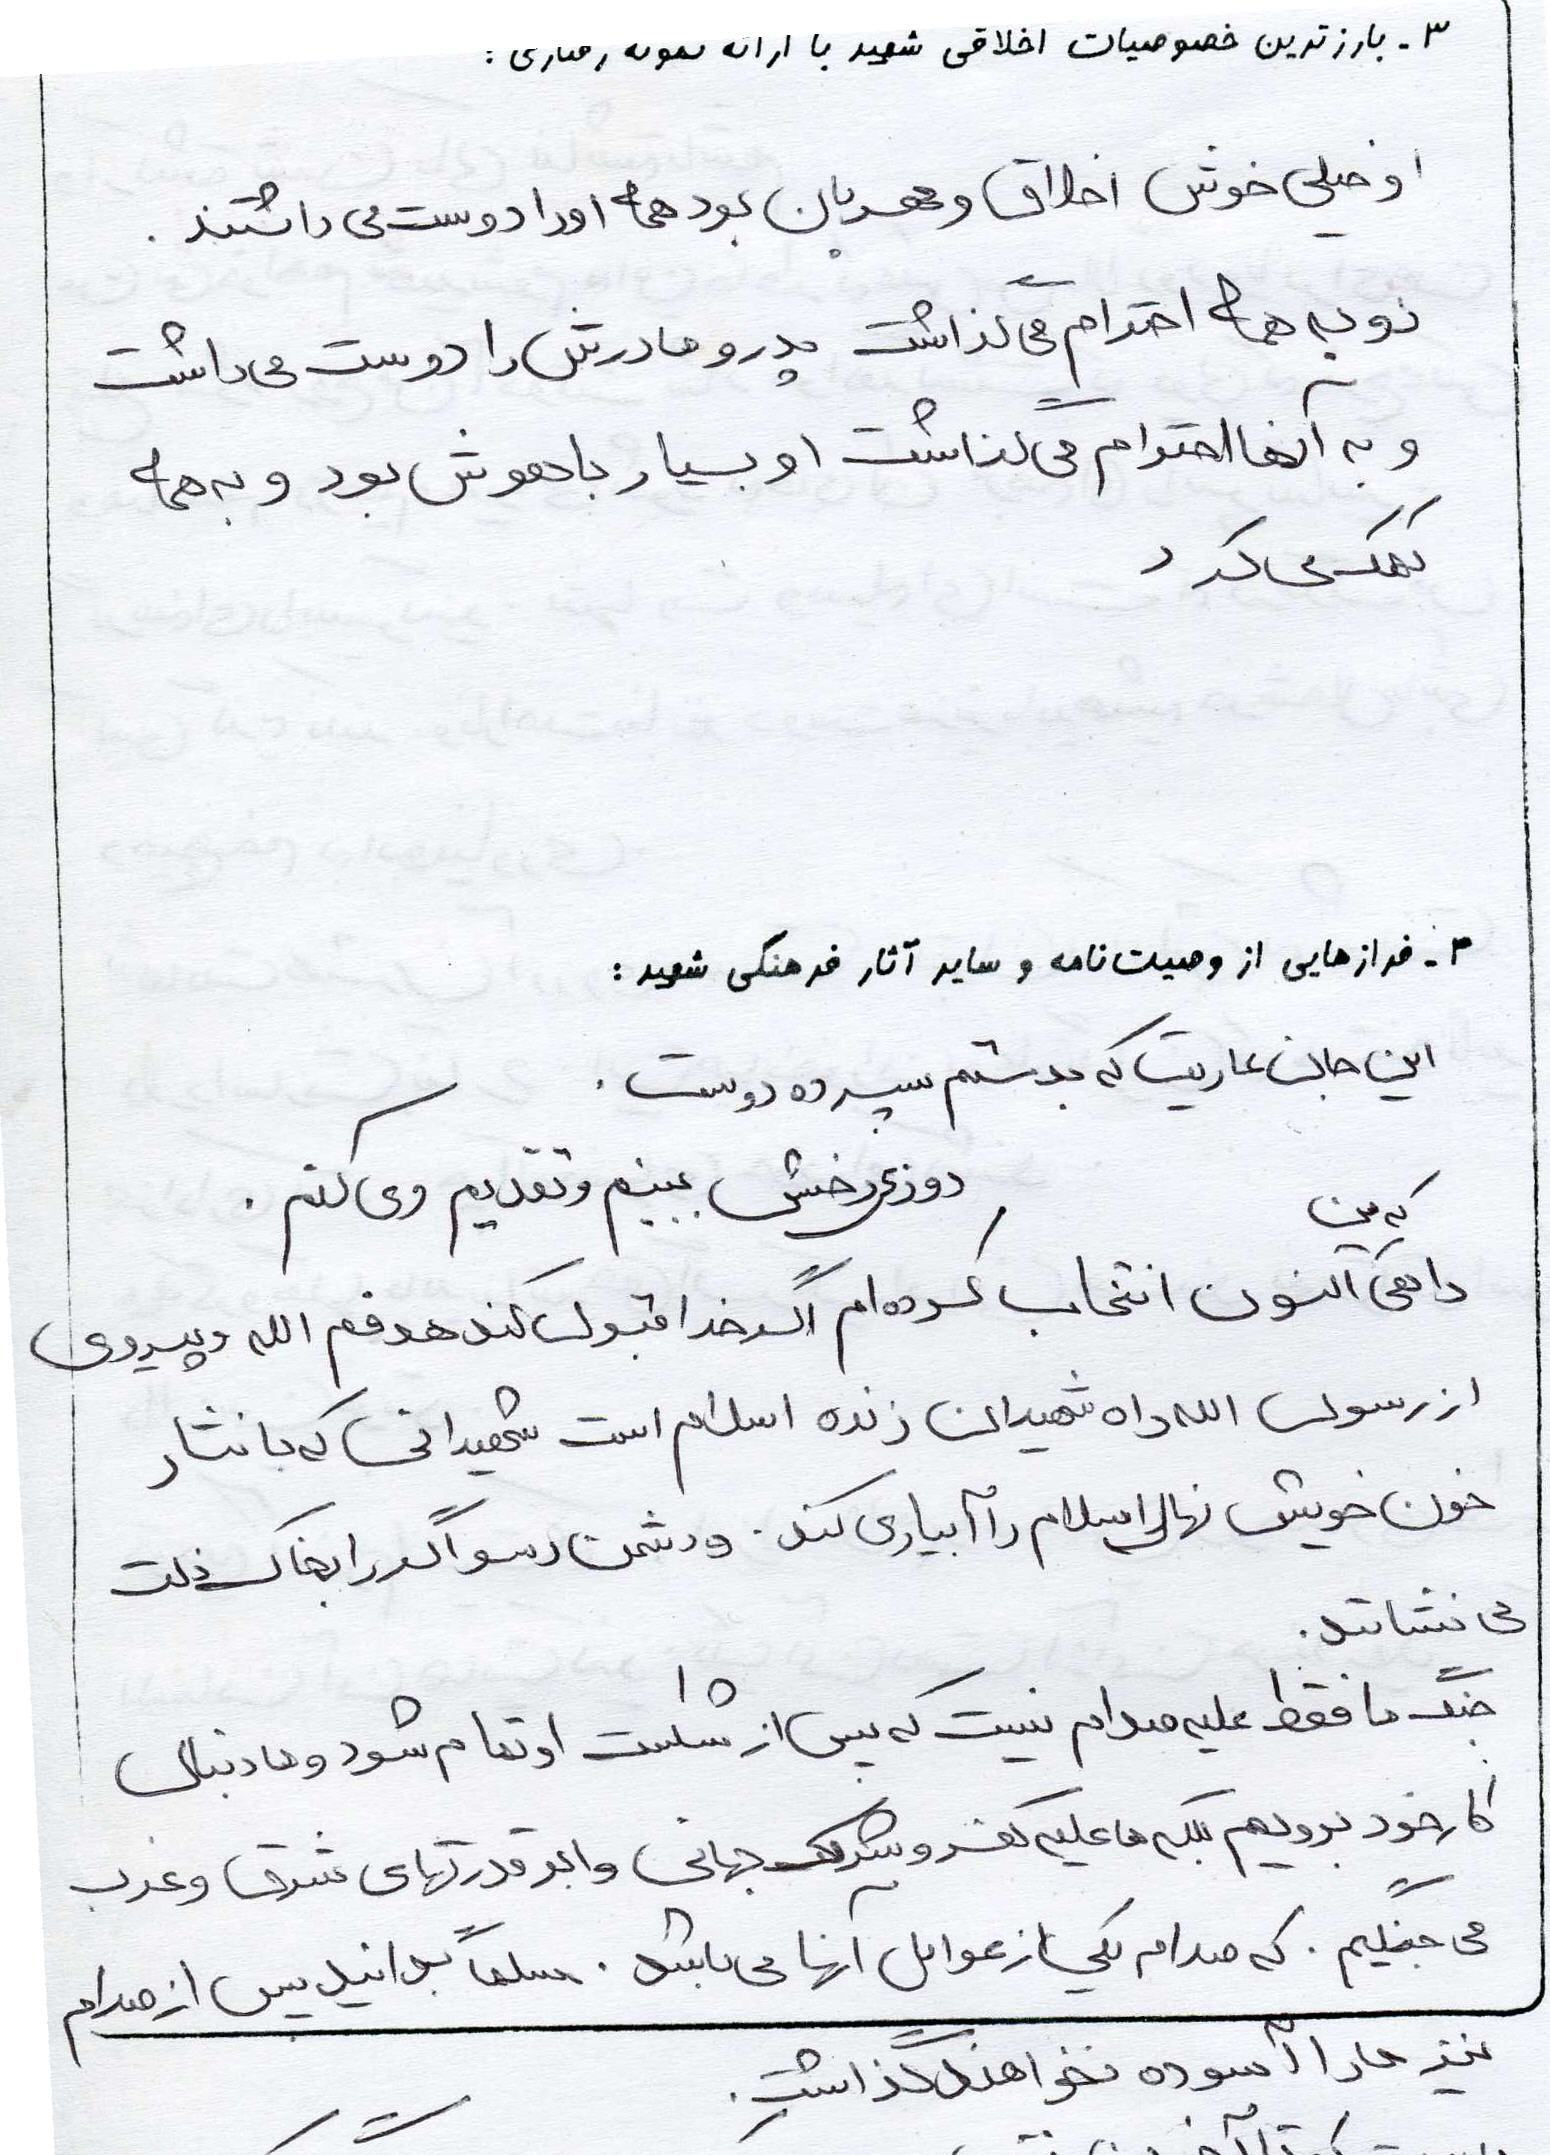 ۳ـ بارزترین خصوصیات اخلاقی شهید با ارائه نمونه رفتاری :
او خیلی خوش اخلاق و مهربان بود همه او را دوست می داشتند .
و به همه احترام می گذاشت پدر و مادرش را دوست می داشت
و به آنها احترام می گذاشت او بسیار باهوش بود و به همه
کمک می کرد
۴ـ فرازهایی از وصیت‌نامه و سایر آثار فرهنگی شهید :
این جان عاریت که بدستم سپرده دوست .
روزی رخش ببینم و تقدیم وی کنم .
که من
راهی اکنون انتخاب کرده ام اگر خدا قبول کند هدفم الله و پیروی
از رسول الله راه شهیدان زنده اسلام است شهیدانی که با نثار
خون خویش نهال اسلام را آبیاری کند . و دشمن رسواگر را بخاک ذلت
می نشانند .
جنگ ما فقط علیه صدام نیست که پس از شکست او تمام شود و ما دنبال
کار خود برویم بلکه ما علیه کفر و شرک جهانی و ابر قدرتهای شرق و غرب
می جنگیم . که صدام یکی از عوامل آنها می باشد . مسلماً بدانید پس از صدام
نیز ما را آسوده نخواهند گذاشت .